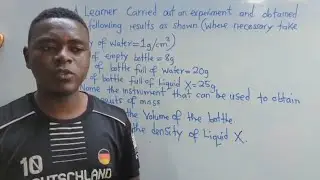 A Learner Carried out an experiment and obtained
following results as shown (where necessary take
of water = 1g/cm³)
of empty bottle = 8g
of bottle full of water = 20g
of bottle full of Liquid X = 25g
the instrument that can be used to obtain
of mass
the Volume of the bottle
the density of Liquid X.
10
DEUTSCHLAND